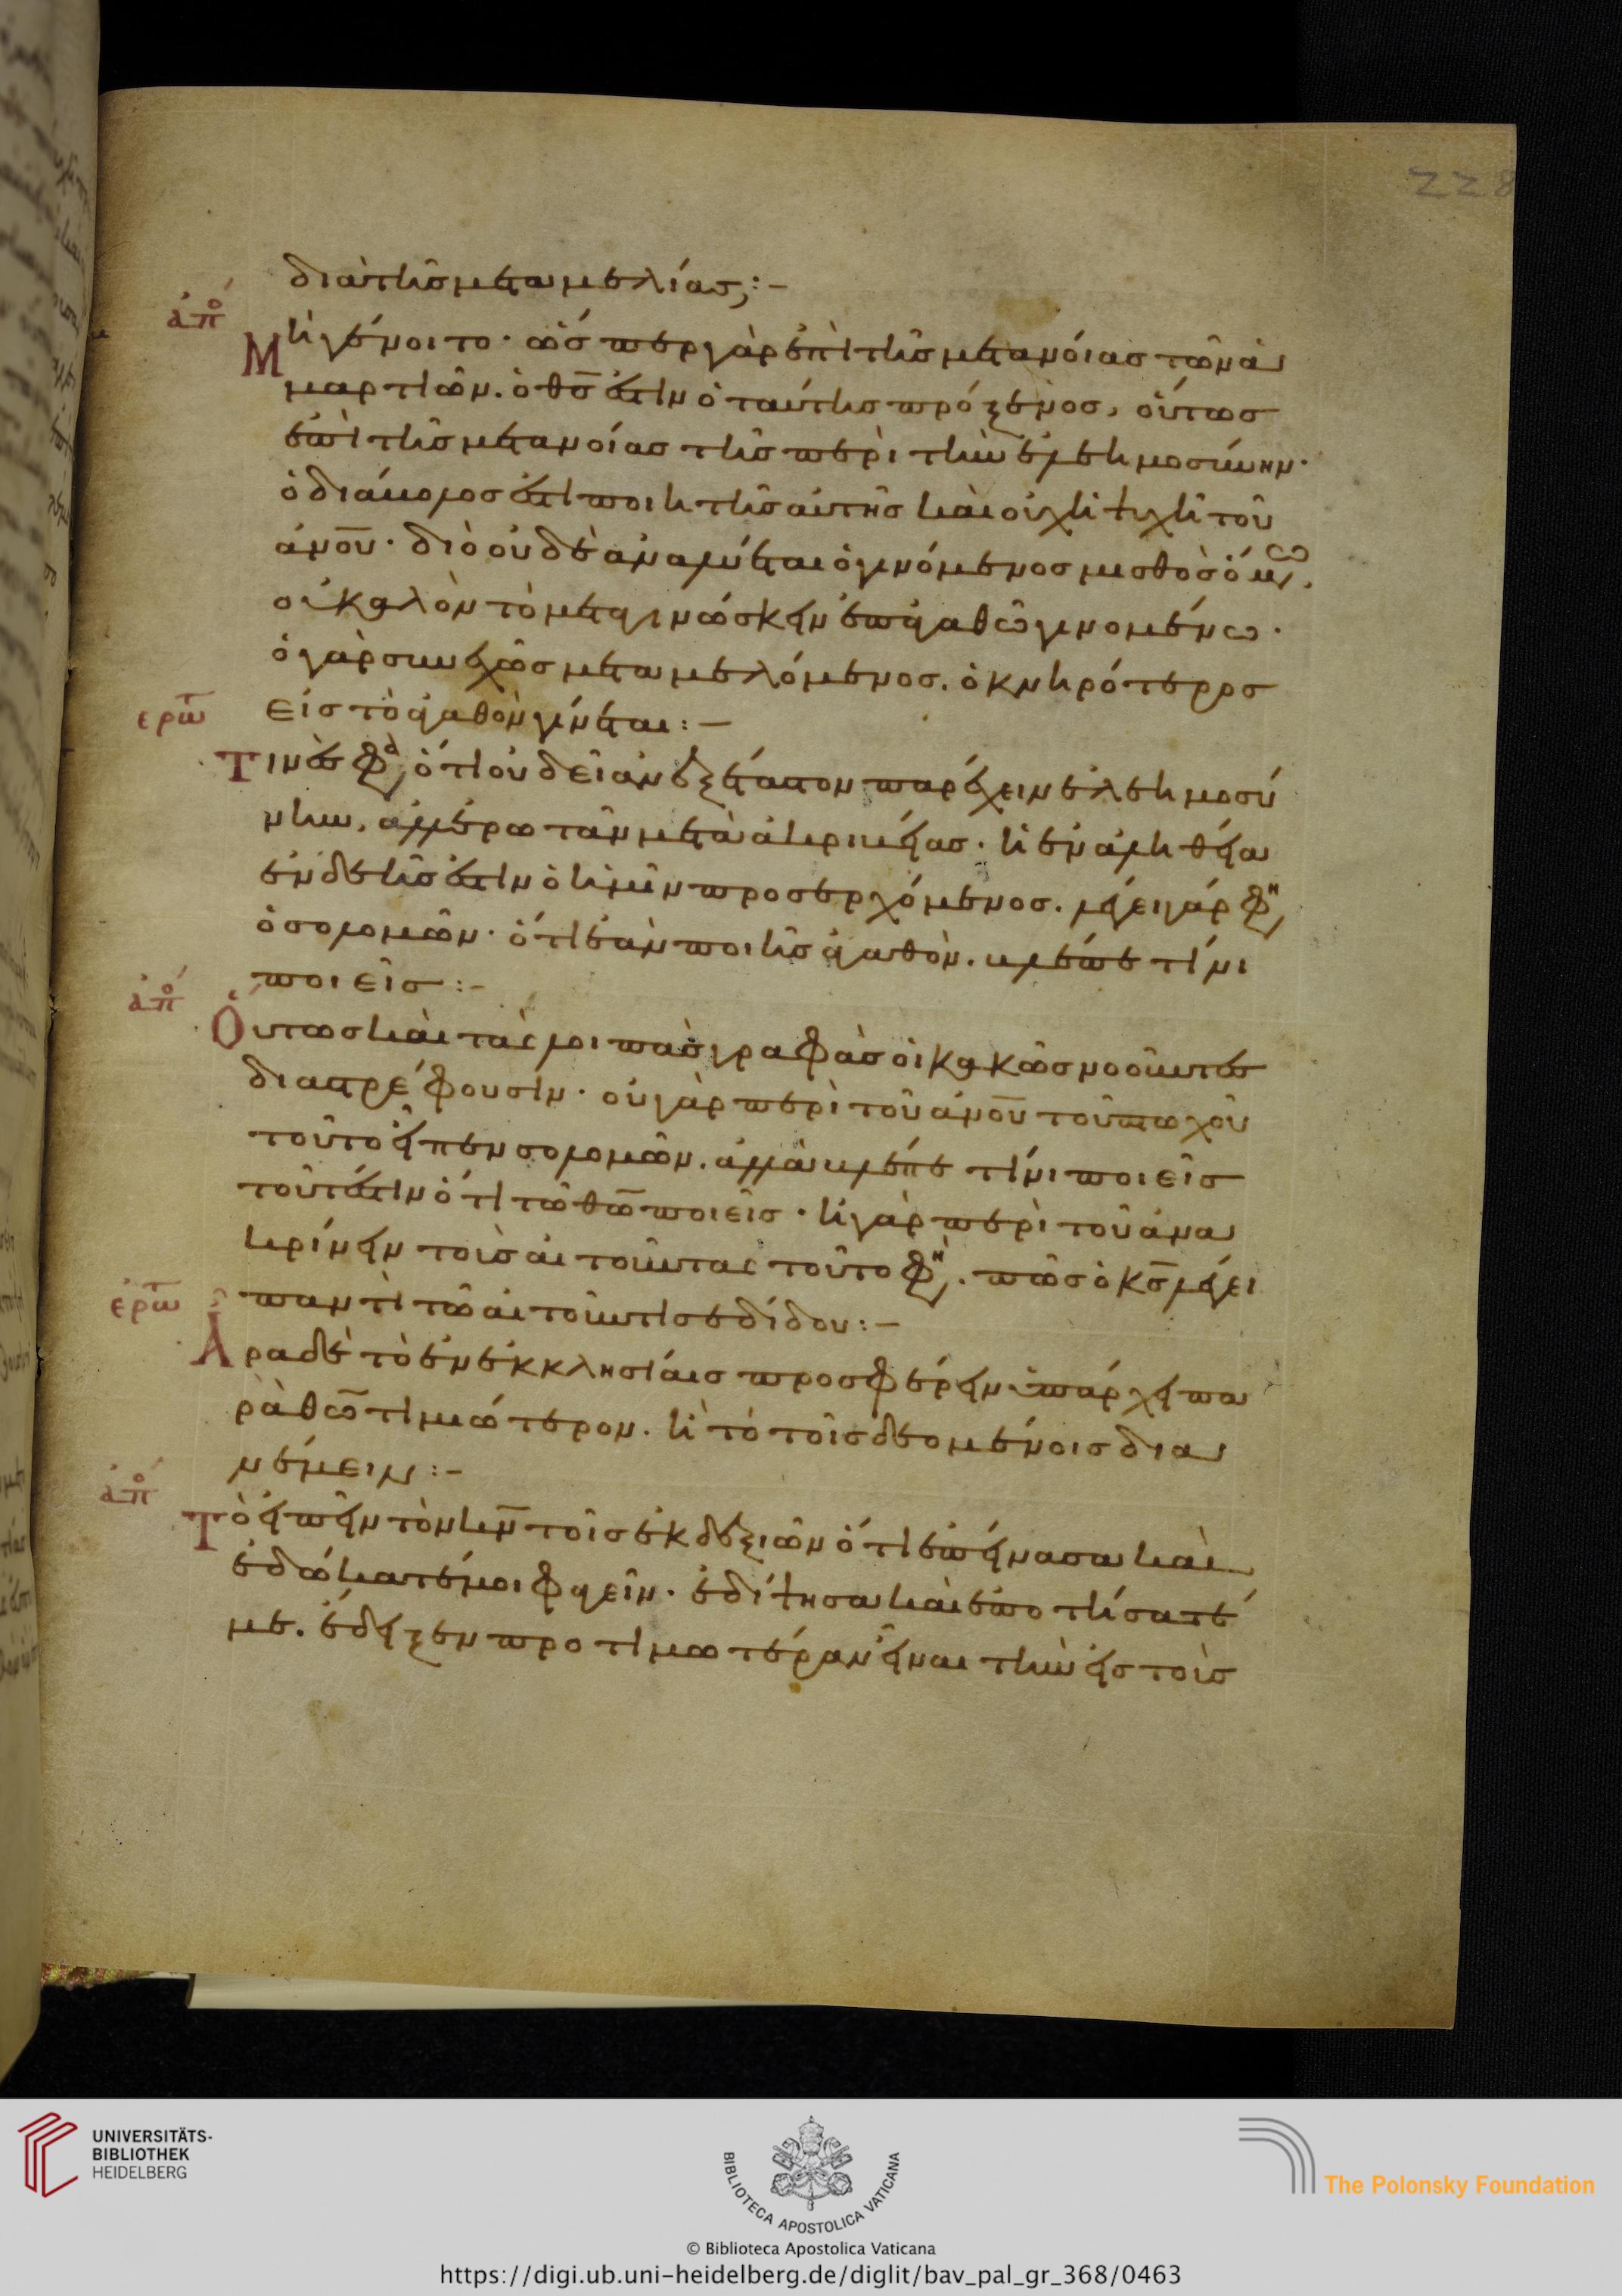 228
διὰ τῆς μεταμελίας; :-
ἀπό
Μὴ γένοιτο· ὥσπερ γὰρ ἐπὶ τῆς μετανοίας τῶν ἁ
μαρτιῶν. ὁ θς̅ ἐστὶν ὁ ταύτης πρόξενος, οὕτως
ἐπὶ τῆς μετανοίας τῆς περὶ τὴν ἐλεημοσύνην·
ὁ διάβολος ἐστὶ ποιητὴς αὐτῆς καὶ οὐχὶ ἡ ψυχὴ τοῦ
ἀνου̅· διὸ οὐδὲ ἀναλύεται ὁ γινόμενος μισθὸς
οὐ καλὸν τὸ μεταγινώσκειν ἐπ' ἀγαθῶ γινομένω·
ὁ γὰρ συνεχῶς μεταμελόμενος. ὀκνηρότερος
ερω̅ εἰς τὸ ἀγαθὸν γίνεται :-
Τινές φα, ὅτι οὐ δεῖ ἀνεξέταστον παρέχειν ἐλεημοσύ
νην, ἀλλ' ἐρωτᾶν μετὰ ἀκρικείας· ἢ ἐν ἀληθεία
ἐνδεής ἐστὶν ὁ ἡμῖν προσερχόμενος. λέγει γάρ φη
ὁ σολομῶν· ὅτι ἐὰν ποιῆς ἀγαθὸν. βλέπε τίνι
ποιεῖς :-
ἀπό
Οὕτως καὶ τὰς λοιπὰς γραφὰς οἱ κακῶς νοοῦντες
διαστρέφουσιν· οὐ γὰρ περὶ τοῦ ἀνου̅ τοῦ πτωχοῦ
τοῦτο εἶπεν σολομῶν. ἀλλὰ βλέπε τίνι ποιεῖς
τουτέστιν ὅτι τῶ θω̅ ποιεῖς· εἰ γὰρ περὶ τοῦ ἀνα
κρίνειν τοὺς αἰτοῦντας τοῦτο φη. πῶς ὁ κς̅ λέγει
ἐρω̅ παντὶ τῶ αἰτοῦντί σε δίδου :-
Ἆρα δὲ τὸ ἐν ἐκκλησίαις προσφέρειν ὑπάρχει πα
ρὰ θω̅ τιμιώτερον. ἢ τὸ τοῖς δεομένοις δια
νέμειν :-
ἀπό
Τὸ εἰπεῖν τὸν κν̅ τοῖς ἐκ δεξιῶν ὅτι ἐπείνασα καὶ
ἐδώκατέ μοι φαγεῖν· ἐδίψησα καὶ ἐποτίσατέ
με. ἔδειξεν προτιμωτέραν εἶναι τὴν εἰς τοὺς
UNIVERSITÄTS-
BIBLIOTHEK
HEIDELBERG
BIBLIOTECA APOSTOLICA VATICANA
The Polonsky Foundation
© Biblioteca Apostolica Vaticana
https://digi.ub.uni-heidelberg.de/diglit/bav_pal_gr_368/0463